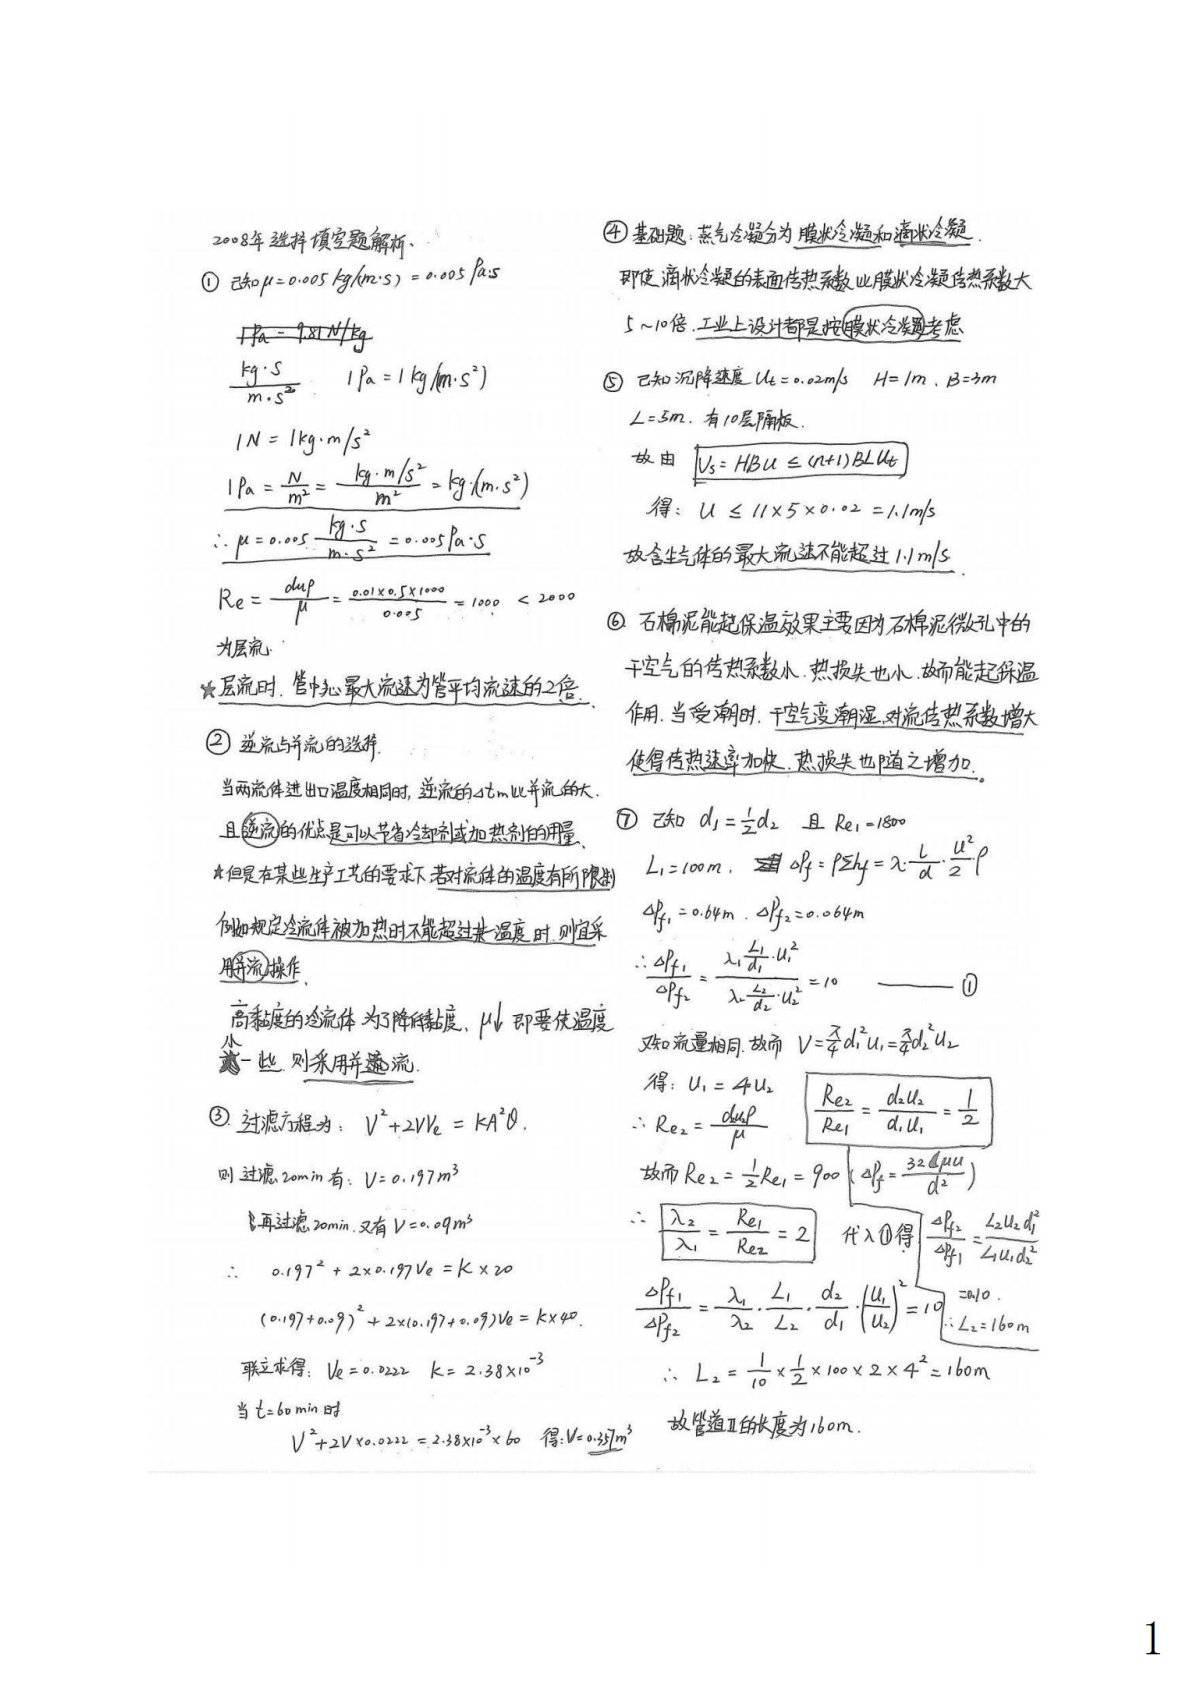 2008年选择填空题解析、
① 已知μ=0.005 kg/(m·s) = 0.005 Pa·s
1Pa = 9.81 N/kg
kg·s / m·s² 1Pa = 1 kg/(m·s²)
1N = 1kg·m/s²
1Pa = N/m² = kg·m/s² / m² = kg/(m·s²)
∴ μ = 0.005 kg·s / m·s² = 0.005 Pa·s
Re = duρ/μ = 0.01×0.5×1000 / 0.005 = 1000 < 2000
为层流.
☆层流时. 管中心最大流速为管平均流速的2倍.
② 逆流与并流的选择.
当两流体进出口温度相同时, 逆流的Δtm比并流的大.
且逆流的优点是可以节省冷却剂或加热剂的用量.
☆但是在某些生产工艺的要求下.若对流体的温度有所限制
例如规定冷流体被加热时不能超过某一温度时.则宜采
用并流操作.
高黏度的冷流体 为了降低黏度、μ↓ 即要使温度
小一些. 则采用并流.
③. 过滤方程为: V²+2VVe = KA²θ.
则 过滤20min有: V=0.197m³
再过滤20min.又有V=0.09m³
∴ 0.197² + 2×0.197Ve = K×20
(0.197+0.09)² + 2×(0.197+0.09)Ve = K×40.
联立求得: Ve=0.0222 K= 2.38×10⁻³
当 t=60min时
V²+2V×0.0222 = 2.38×10⁻³×60 得:V=0.357m³
④ 基础题: 蒸气冷凝分为 膜状冷凝和滴状冷凝.
即使 滴状冷凝的表面传热系数比膜状冷凝传热系数大
5~10倍.工业上设计都是按膜状冷凝考虑
⑤ 已知沉降速度 Ut=0.02m/s H=1m. B=3m
L=5m. 有10层隔板.
故由 Vs = HBU ≤ (n+1)BLUt
得: U ≤ 11×5×0.02 = 1.1m/s
故含尘气体的最大流速不能超过1.1m/s.
⑥ 石棉泥能起保温效果主要因为石棉泥微孔中的
干空气的传热系数小.热损失也小.故而能起保温
作用.当受潮时.干空气变潮湿.对流传热系数增大
使得传热速率加快.热损失也随之增加。
⑦ 已知 d₁=½d₂ 且 Re₁=1800
L₁=100m. ΔPf = ρΣhf = λ·L/d·u²/2·ρ
ΔPf₁=0.64m. ΔPf₂=0.064m
∴ ΔPf₁/ΔPf₂ = λ₁ L₁/d₁·u₁² / λ₂ L₂/d₂·u₂² = 10 —— ①
又知流量相同.故而 V=π/4 d₁²u₁=π/4 d₂²u₂
得: U₁ = 4U₂ Re₂/Re₁ = d₂u₂/d₁u₁ = 1/2
∴ Re₂ = duρ/μ
故而Re₂=½Re₁=900 (ΔPf = 32Lμu/d²)
∴ λ₂/λ₁ = Re₁/Re₂ = 2 代入①得 ΔPf₂/ΔPf₁ = L₂u₂d₁²/L₁u₁d₂²
ΔPf₁/ΔPf₂ = λ₁/λ₂ · L₁/L₂ · d₂/d₁ · (u₁/u₂)² = 10 =0.10.
∴L₂=160m
∴ L₂ = 1/10 × 1/2 × 100 × 2 × 4² = 160m
故管道Ⅱ的长度为160m.
1